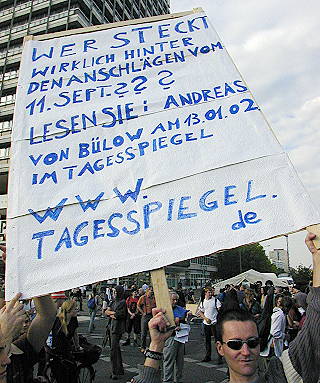 WER STECKT
WIRKLICH HINTER
DEN ANSCHLÄGEN VOM
11. SEPT.???
LESEN SIE: ANDREAS
VON BÜLOW AM 13.01.02
IM TAGESSPIEGEL
WWW.
TAGESSPIEGEL.
de